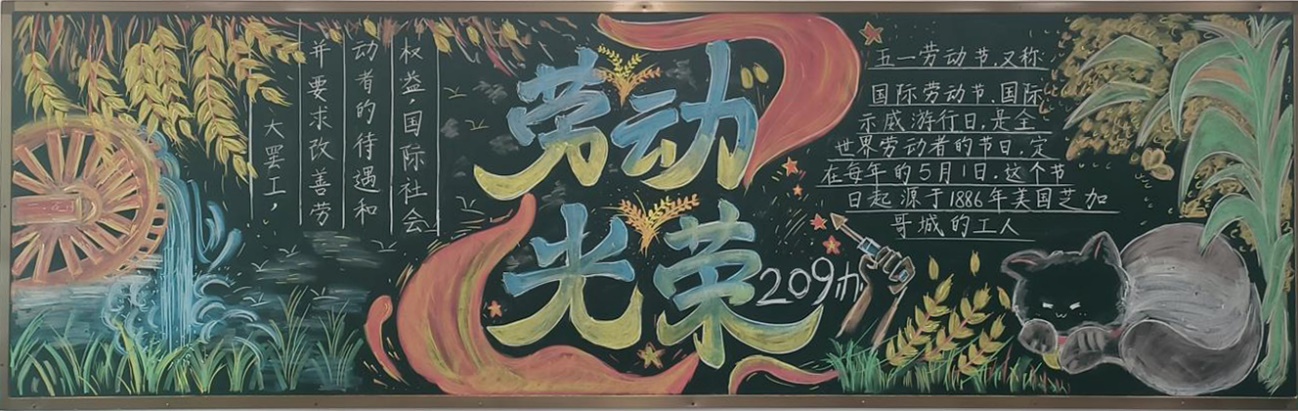 大罢工，
并要求改善劳
动者的待遇和
权益，国际社会
劳动
光荣
209
五一劳动节，又称
国际劳动节、国际
示威游行日，是全
世界劳动者的节日，定
在每年的5月1日。这个节
日起源于1886年美国芝加
哥城的工人